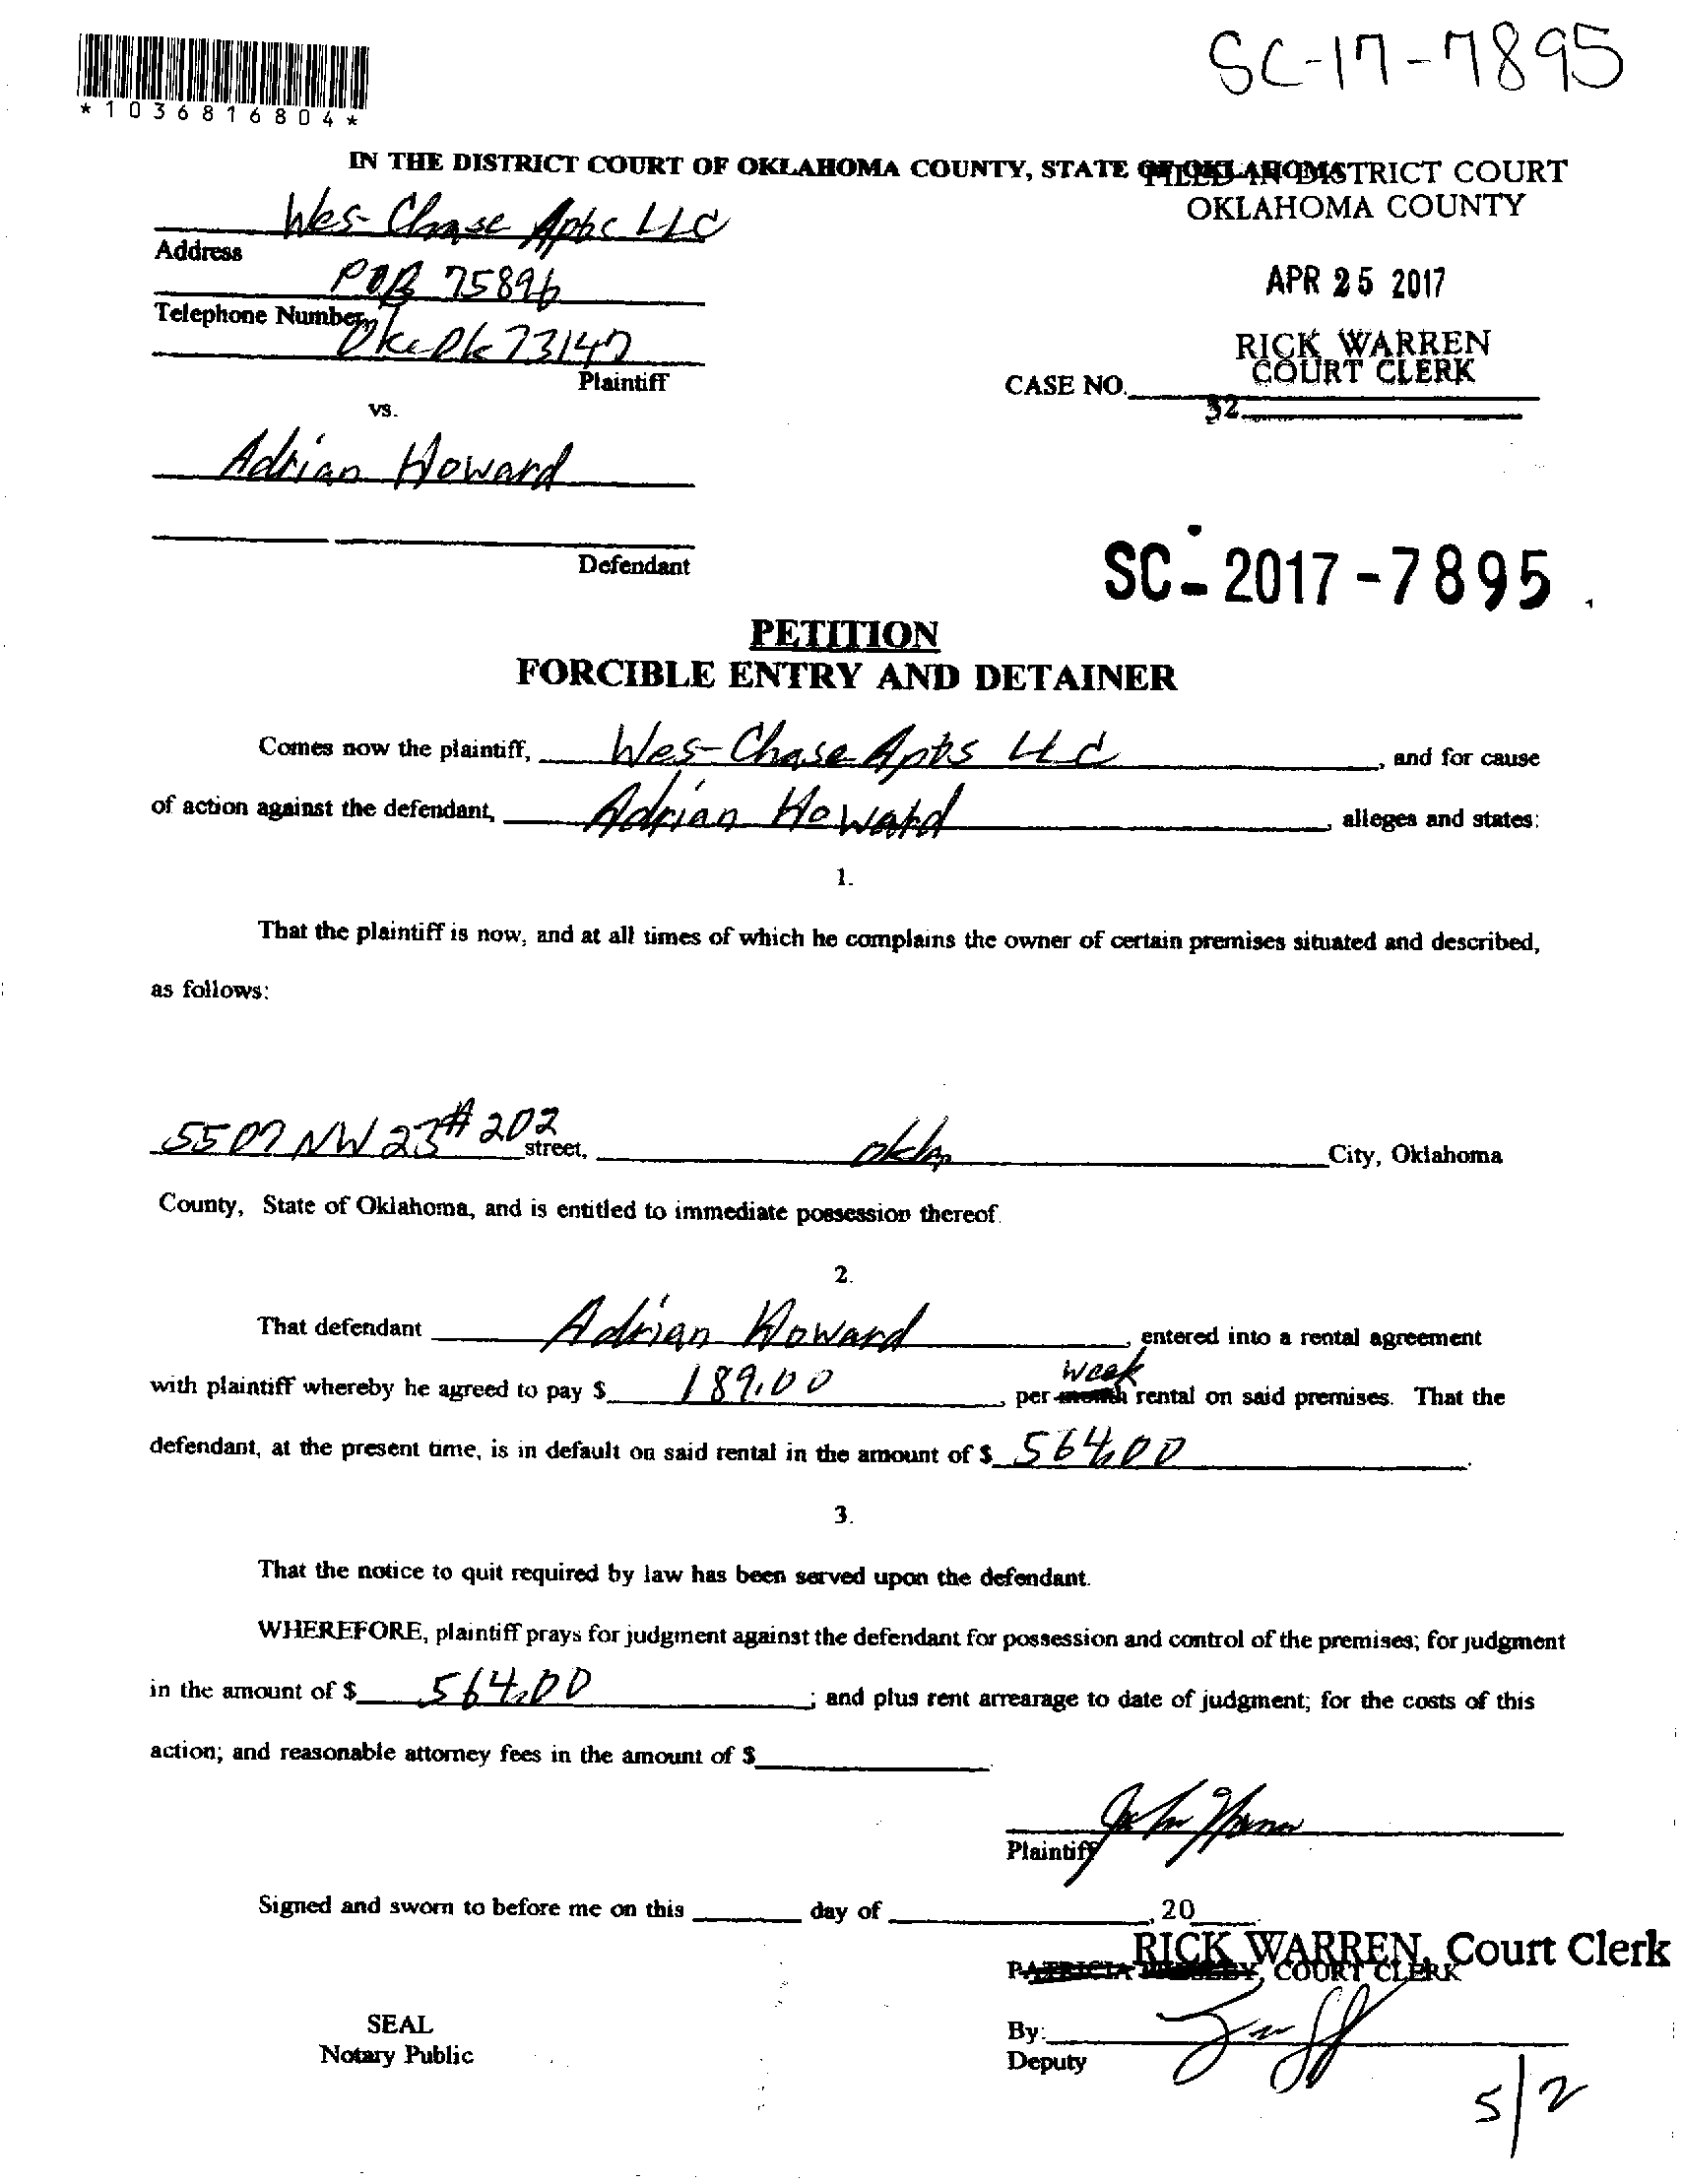 SC-17-7895
*1036816804*
IN THE DISTRICT COURT OF OKLAHOMA COUNTY, STATE OF OKLAHOMA
FILED IN DISTRICT COURT
OKLAHOMA COUNTY
Wes-Chase Apts LLC
Address
POB 75896
APR 25 2017
Telephone Number
Okc Ok 73147
RICK WARREN
COURT CLERK
Plaintiff
CASE NO.
32
vs.
Adrian Howard
Defendant
SC-2017-7895
PETITION
FORCIBLE ENTRY AND DETAINER
Comes now the plaintiff, Wes-Chase Apts LLC, and for cause
of action against the defendant, Adrian Howard, alleges and states:
1.
That the plaintiff is now, and at all times of which he complains the owner of certain premises situated and described,
as follows:
5507 NW 23 #202 street, City, Oklahoma
County, State of Oklahoma, and is entitled to immediate possession thereof.
2.
That defendant Adrian Howard, entered into a rental agreement
with plaintiff whereby he agreed to pay $ 189.00, per month week rental on said premises. That the
defendant, at the present time, is in default on said rental in the amount of $ 564.00.
3.
That the notice to quit required by law has been served upon the defendant.
WHEREFORE, plaintiff prays for judgment against the defendant for possession and control of the premises; for judgment
in the amount of $ 564.00; and plus rent arrearage to date of judgment; for the costs of this
action; and reasonable attorney fees in the amount of $
Plaintiff
Signed and sworn to before me on this day of , 20
RICK WARREN, Court Clerk
PATRICIA PRESLEY, COURT CLERK
SEAL
Notary Public
By:
Deputy
5/2